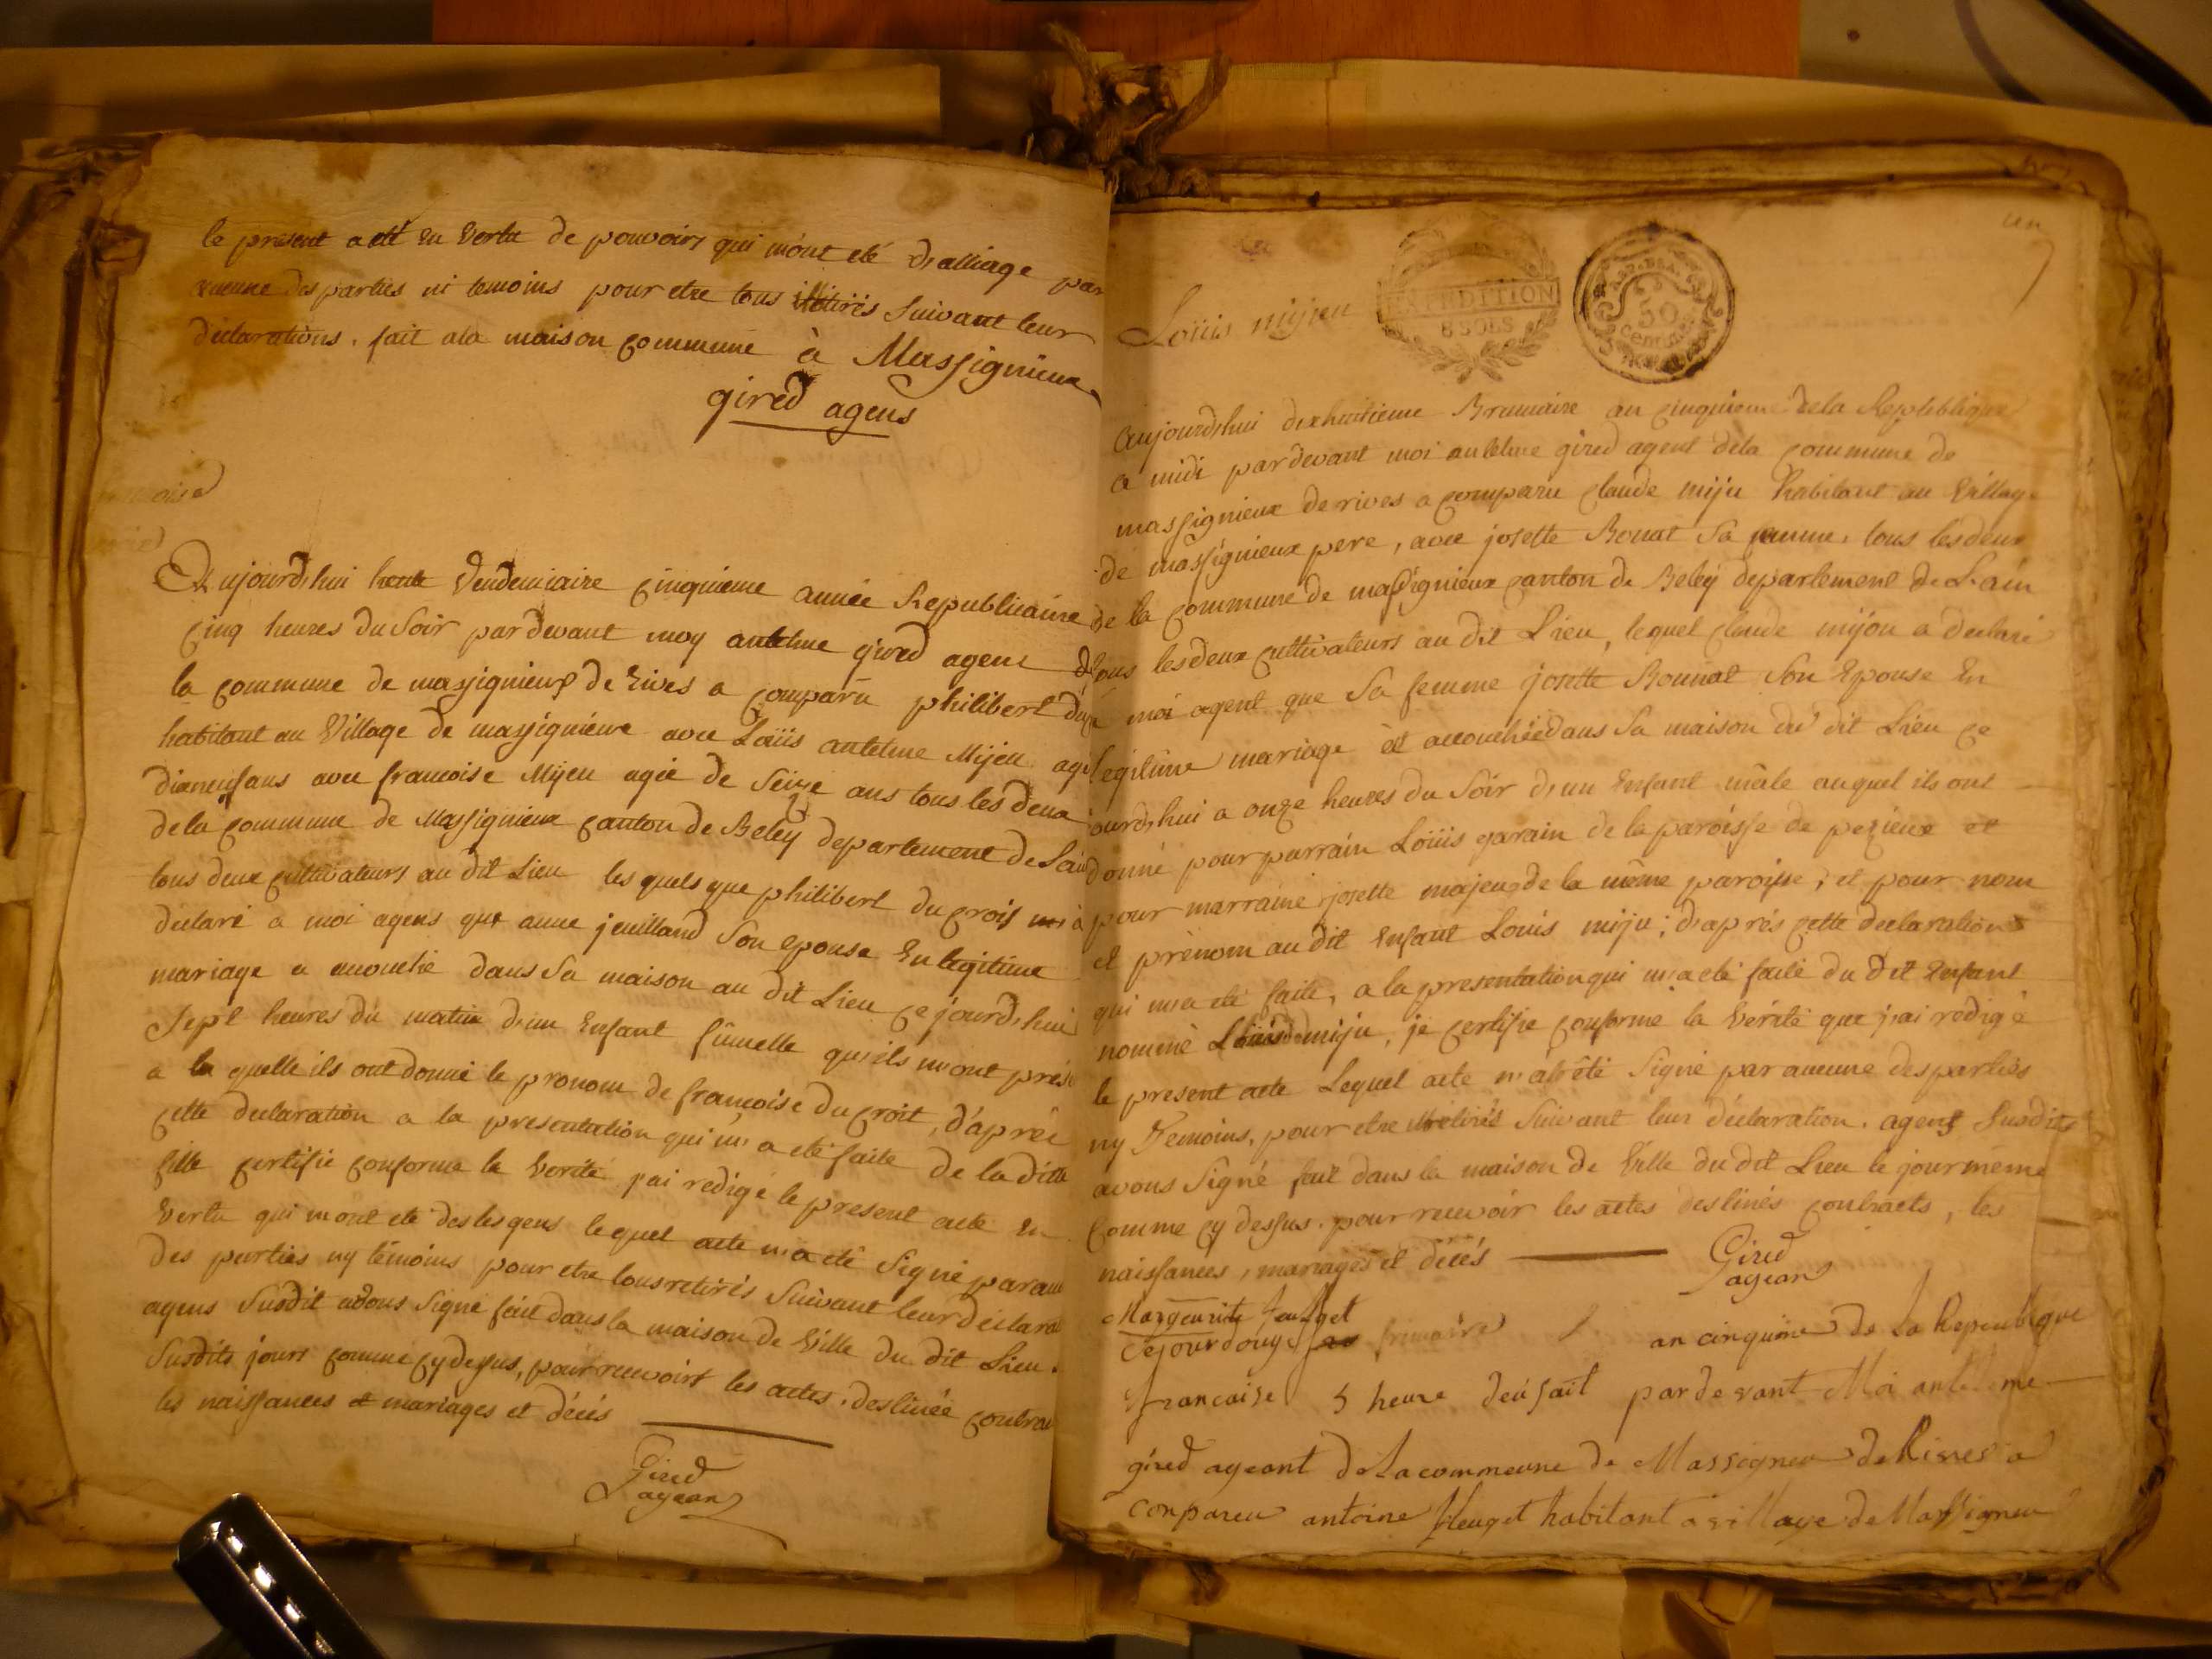 le present acte en vertu de pouvoirs qui m'ont été d,alliage par
aucune des parties ni temoins pour etre tous illitirés suivant leur
declarations. fait ala maison commune à Massignieux
gired agens
Aujourd,hui Vendemiaire cinquieme année Republicaine
cinq heures du Soir par devant moy antelme gired agent d
la commune de massignieux de Rives a comparu philibert du
habitant au Village de massignieux avec Loüis antelme Mijeu agé
dixneuf ans avec francoise Mijeu agée de Seize ans tous les deux
dela commune de Massignieux canton de Beley departement de Lain
tous deux cultivateurs au dit Lieu les quels que philibert du crois à
declaré a moi agens que anne juilland Son epouse En legitime
mariage a accouché dans Sa maison au dit Lieu ce jourd,hui
Sept heures du matin d,un Enfant fumelle qu'ils m'ont prés
a la quelle ils ont donné le pronom de francoise du croit, d'aprés
cette declaration a la presentation qui m'a eté faite de la ditte
fille certifie conforme la Verité j'ai redigé le present acte en
Vertu qui m'ont eté des lesgens lequel acte n'a eté Signé par auc
des parties ny témoins pour etre tous retirés Suivant leur déclarat
agens Susdit avons Signé fait dans la maison de Ville du dit Lieu.
Susdits jours comme cy dessus, pour recevoirt les actes, destinée contra
les naissances et mariages et décés
Gired
agean
un
Loüis mijeu
EXPEDITION
8 SOLS
50
Centimes
Aujourd,hui dixhuitieme Brumaire an cinquieme dela Republique
a midi par devant moi antelme gired agent dela commune de
massignieux de rives a comparu claude miju habitant au Village
de massignieux pere, avec josette Bonnat Sa femme, tous les deux
de la commune de massignieux canton de Beley departement de L'ain
tous les deux cultivateurs au dit Lieu, lequel claude mijou a declaré
a moi agent que Sa femme josette Bonnat Son Epouse En
legitime mariage èst accouchée dans Sa maison du dit Lieu ce
jourd,hui a onze heures du Soir d,un Enfant mâle auquel ils ont
donné pour parrain Loüis garain de la paroisse de pezieux et
pour marraine josette majeur de la même paroisse, et pour nom
et prènom au dit Enfant Louis miju; d,aprés cette declaration
qui m,a eté faite, a la presentation qui m,a eté faite du dit Enfant
nommé Loüis miju, je certifie conforme la Vérité que j,ai redigé
le present acte Lequel acte n'a été Signé par aucune des parties
ny Temoins, pour etre illitirés Suivant leur déclaration. agent Susdits
avons Signé fait dans la maison de Ville du dit Lieu le jour même
comme cy dessus. pour recevoir les actes destinés contracts, les
naissances, mariages et décés
Gired
agean
Margeurite feuget
Cejourdouze frimaire an cinquime de La Repeublique
francaise 5 heure deu sait par devant Moi anteleme
gired ageant de Lacommeune de Massigneu de Rives a
conpareu antoine feuget habitant a village de Massigneu